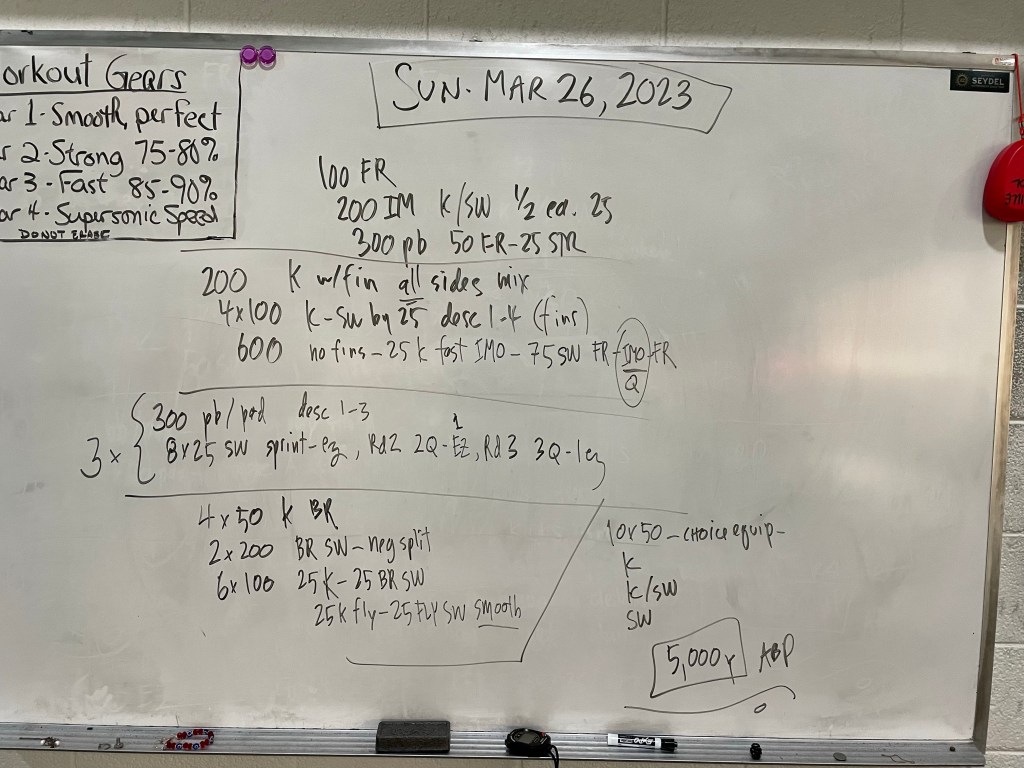 orkout Gears
ar 1-Smooth, perfect
r 2-Strong 75-80%
ar 3-Fast 85-90%
ar 4-Supersonic Speed
DO NOT ERASE
SUN. MAR 26, 2023
SEYDEL
100 FR
200 IM K/SW 1/2 ea. 25
300 pb 50 FR-25 STR
200 K w/fin all sides mix
4x100 K-SW by 25 desc 1-4 (fins)
600 no fins-25 K fast IMO-75 SW FR-IMO-FR
Q
3x
300 pb/pad desc 1-3
1
8x25 SW sprint-ez, Rd 2 2Q-EZ, Rd 3 3Q-1ez
4x50 K BR
2x200 BR SW-neg split
6x100 25K-25 BR SW
25K fly-25 FLY SW smooth
10x50-CHOICE equip-
K
K/SW
SW
5,000y ABP
EXPO